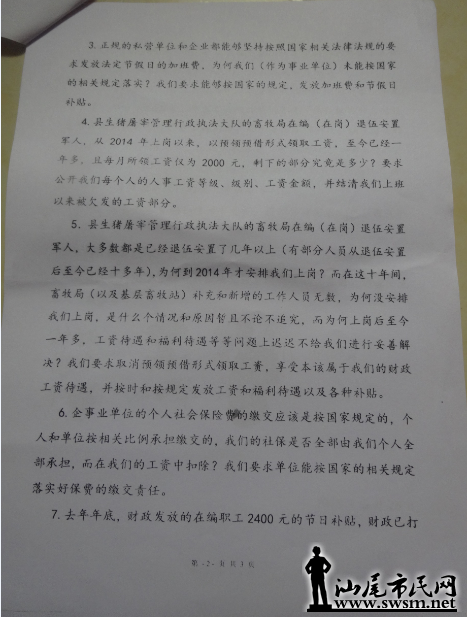 3. 正规的私营单位和企业都能够坚持按照国家相关法律法规的要
求发放法定节假日的加班费，为何我们（作为事业单位）未能按国家
的相关规定落实？我们要求能够按国家的规定，发放加班费和节假日
补贴。
4. 县生猪屠宰管理行政执法大队的畜牧局在编（在岗）退伍安置
军人，从 2014 年上岗以来，以预领预借形式领取工资，至今已经一
年多，且每月所领工资仅为 2000 元，剩下的部分究竟是多少？要求
公开我们每个人的人事工资等级、级别、工资金额，并结清我们上班
以来被欠发的工资部分。
5. 县生猪屠宰管理行政执法大队的畜牧局在编（在岗）退伍安置
军人，大多数都是已经退伍安置了几年以上（有部分人员从退伍安置
后至今已经十多年），为何到2014年才安排我们上岗？而在这十年间，
畜牧局（以及基层畜牧站）补充和新增的工作人员无数，为何没安排
我们上岗，是什么个情况和原因暂且不论不追究，而为何上岗后至今
一年多，工资待遇和福利待遇等等问题上迟迟不给我们进行妥善解
决？我们要求取消预领预借形式领取工资，享受本该属于我们的财政
工资待遇，并按时和按规定发放工资和福利待遇以及各种补贴。
6. 企事业单位的个人社会保险费的缴交应该是按国家规定的，个
人和单位按相关比例承担缴交的，我们的社保是否全部由我们个人全
部承担，而在我们的工资中扣除？我们要求单位能按国家的相关规定
落实好保费的缴交责任。
7. 去年年底，财政发放的在编职工2400 元的节日补贴，财政已打
第 -2- 页 共 3 页
汕尾市民网
www.swsm.net